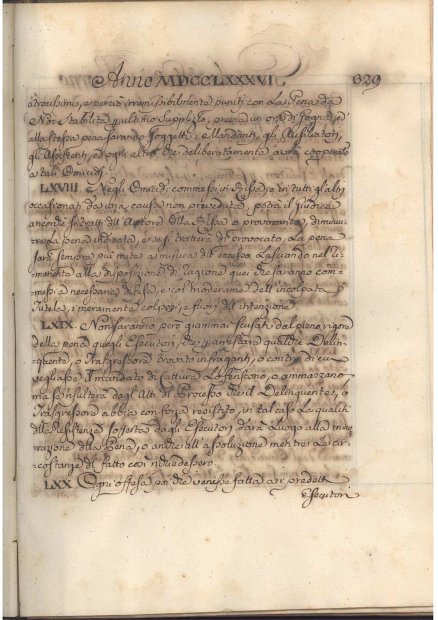 Anno MDCCLXXXVI 629
atrocissimi, e perciò irremissibilmente puniti con la Pena da
Noi stabilita qual
alla stessa pena saranno soggetti i Mandanti, gli Ausiliatori,
gli Assistenti, ed ogni altro che deliberatamente avrà cooperato
a tali Omicidi.
LXVIII. Negli Omicidi commessi in Rissa, o in tutti gl'altri
occasionati da una causa non preveduta, potrà il Giudice
ancorchè si tratti dell'Autore della Rissa o provocante, diminui-
re la pena ordinaria, e se si tratterà di provocato, la pena
sarà sempre più mite a misura dell'eccesso lasciando nel ri-
manente alla disposizione di ragione quei che saranno com-
messi a necessaria difesa, e col moderame dell'incolpata
Tutela, i meramente colposi, e fuori dell'intenzione.
LXIX. Non saranno però giammai scusati dal pieno rigore
della pena quegli Esecutori, che arrestare qualche Delin-
quente, o Trasgressore trovato in fraganti, o contro di cui
vegliasse il mandato di Cattura lo feriscono, o ammazzano
ma se resulterà dagli Atti del Processo che il Delinquente, o
Trasgressore abbia con forza resistito, in tal caso la qualità
della Resistenza sofferta dagli Esecutori darà luogo alla mino-
razione della Pena, o anche all'assoluzione mentre le cir-
costanze di fatto così
LXX. Ogni offesa poi che venisse fatta a i predetti
Esecutori